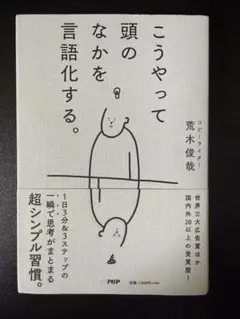 こうやって
頭の
なかを
言語化する。
コピーライター
荒木俊哉
世界三大広告賞ほか
国内外20以上の受賞歴！
1日3分&3ステップの
一瞬で思考がまとまる
超シンプル習慣。
PHP